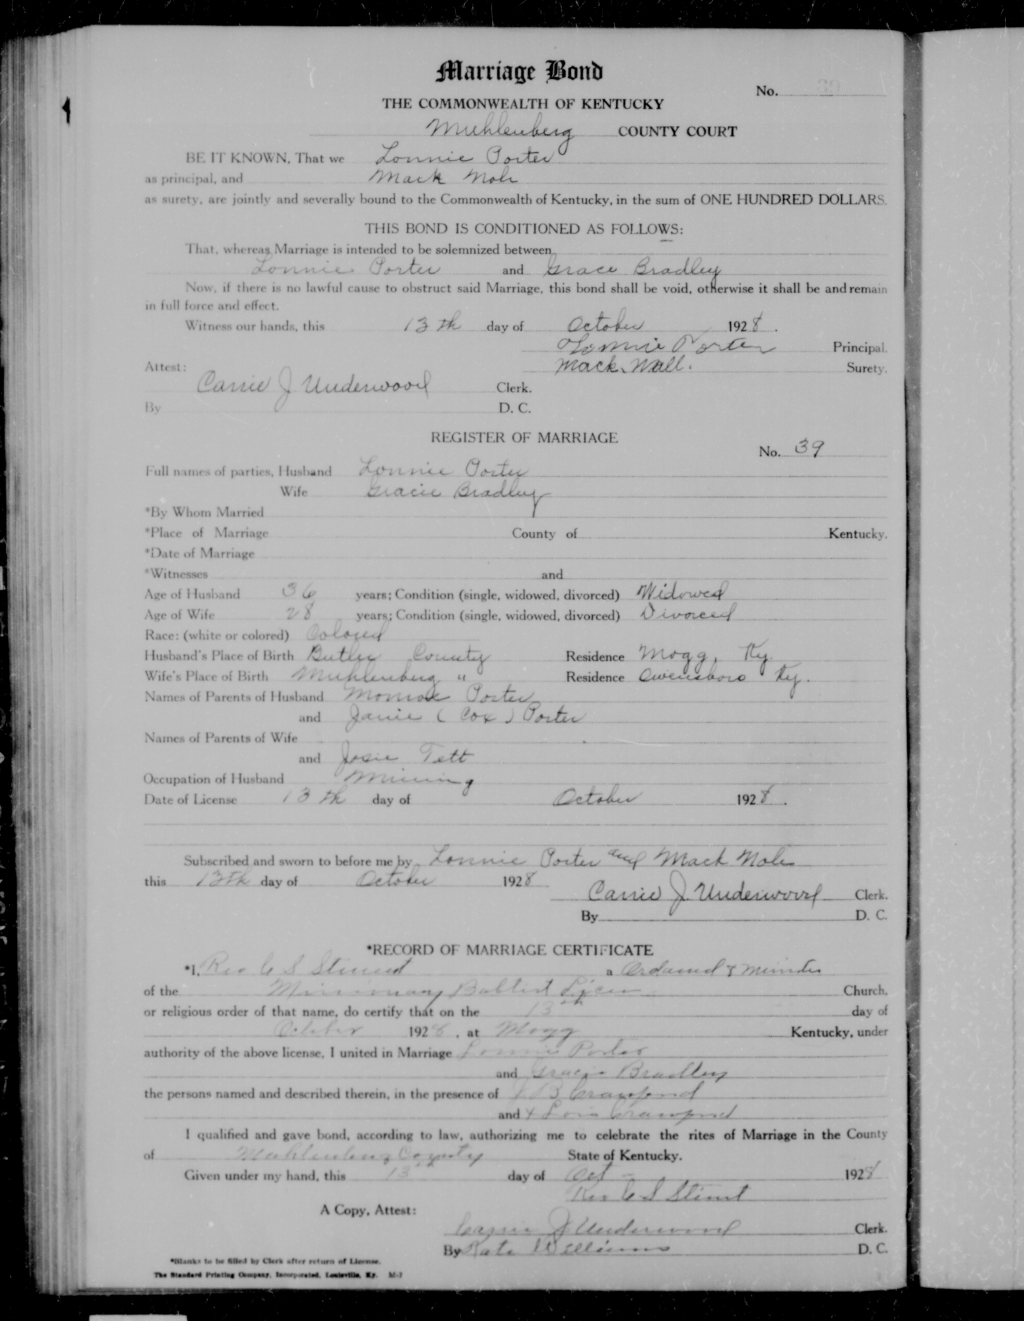 Marriage Bond
No. 39
THE COMMONWEALTH OF KENTUCKY
Muhlenberg COUNTY COURT
BE IT KNOWN, That we Lonnie Porter
as principal, and Mack Nole
as surety, are jointly and severally bound to the Commonwealth of Kentucky, in the sum of ONE HUNDRED DOLLARS.
THIS BOND IS CONDITIONED AS FOLLOWS:
That, whereas Marriage is intended to be solemnized between
Lonnie Porter and Grace Bradley
Now, if there is no lawful cause to obstruct said Marriage, this bond shall be void, otherwise it shall be and remain
in full force and effect.
Witness our hands, this 13th day of October 1928.
Lonnie Porter Principal.
Mack Surety.
Attest:
Carrie J Underwood Clerk.
By D. C.
REGISTER OF MARRIAGE
No. 39
Full names of parties, Husband Lonnie Porter
Wife Gracie Bradley
*By Whom Married
*Place of Marriage County of Kentucky.
*Date of Marriage
*Witnesses and
Age of Husband 36 years; Condition (single, widowed, divorced) Widowed
Age of Wife 28 years; Condition (single, widowed, divorced) Divorced
Race: (white or colored) Colored
Husband's Place of Birth Butler County Residence Mogg, Ky.
Wife's Place of Birth Muhlenberg " Residence Owensboro Ky.
Names of Parents of Husband Monroe Porter
and Janie (Cox) Porter
Names of Parents of Wife
and Josie Tett
Occupation of Husband Mining
Date of License 13th day of October 1928.
Subscribed and sworn to before me by Lonnie Porter and Mack Nole
this 13th day of October 1928
Carrie J. Underwood Clerk.
By D. C.
*RECORD OF MARRIAGE CERTIFICATE
*I, Rev C S a Ordained Minister
of the Missionary Babtist Church,
or religious order of that name, do certify that on the 13th day of
October 1928, at Mogg Kentucky, under
authority of the above license, I united in Marriage Lonnie Porter
and Gracie Bradley
the persons named and described therein, in the presence of B Crawford
and x Crawford
I qualified and gave bond, according to law, authorizing me to celebrate the rites of Marriage in the County
of Muhlenberg County State of Kentucky.
Given under my hand, this 13th day of Oct 1928
Rev C S
A Copy, Attest:
Carrie J Underwood Clerk.
By Kate Williams D. C.
*Blanks to be filled by Clerk after return of License.
The Standard Printing Company, Incorporated, Louisville, Ky.